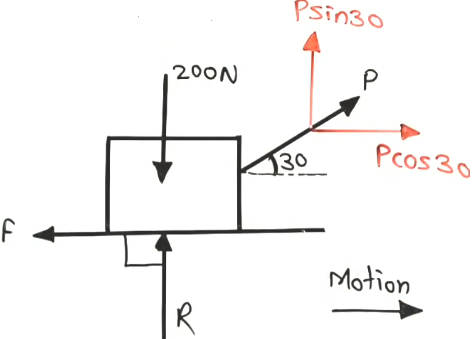 Psin30
200N
P
30
Pcos30
F
Motion
R